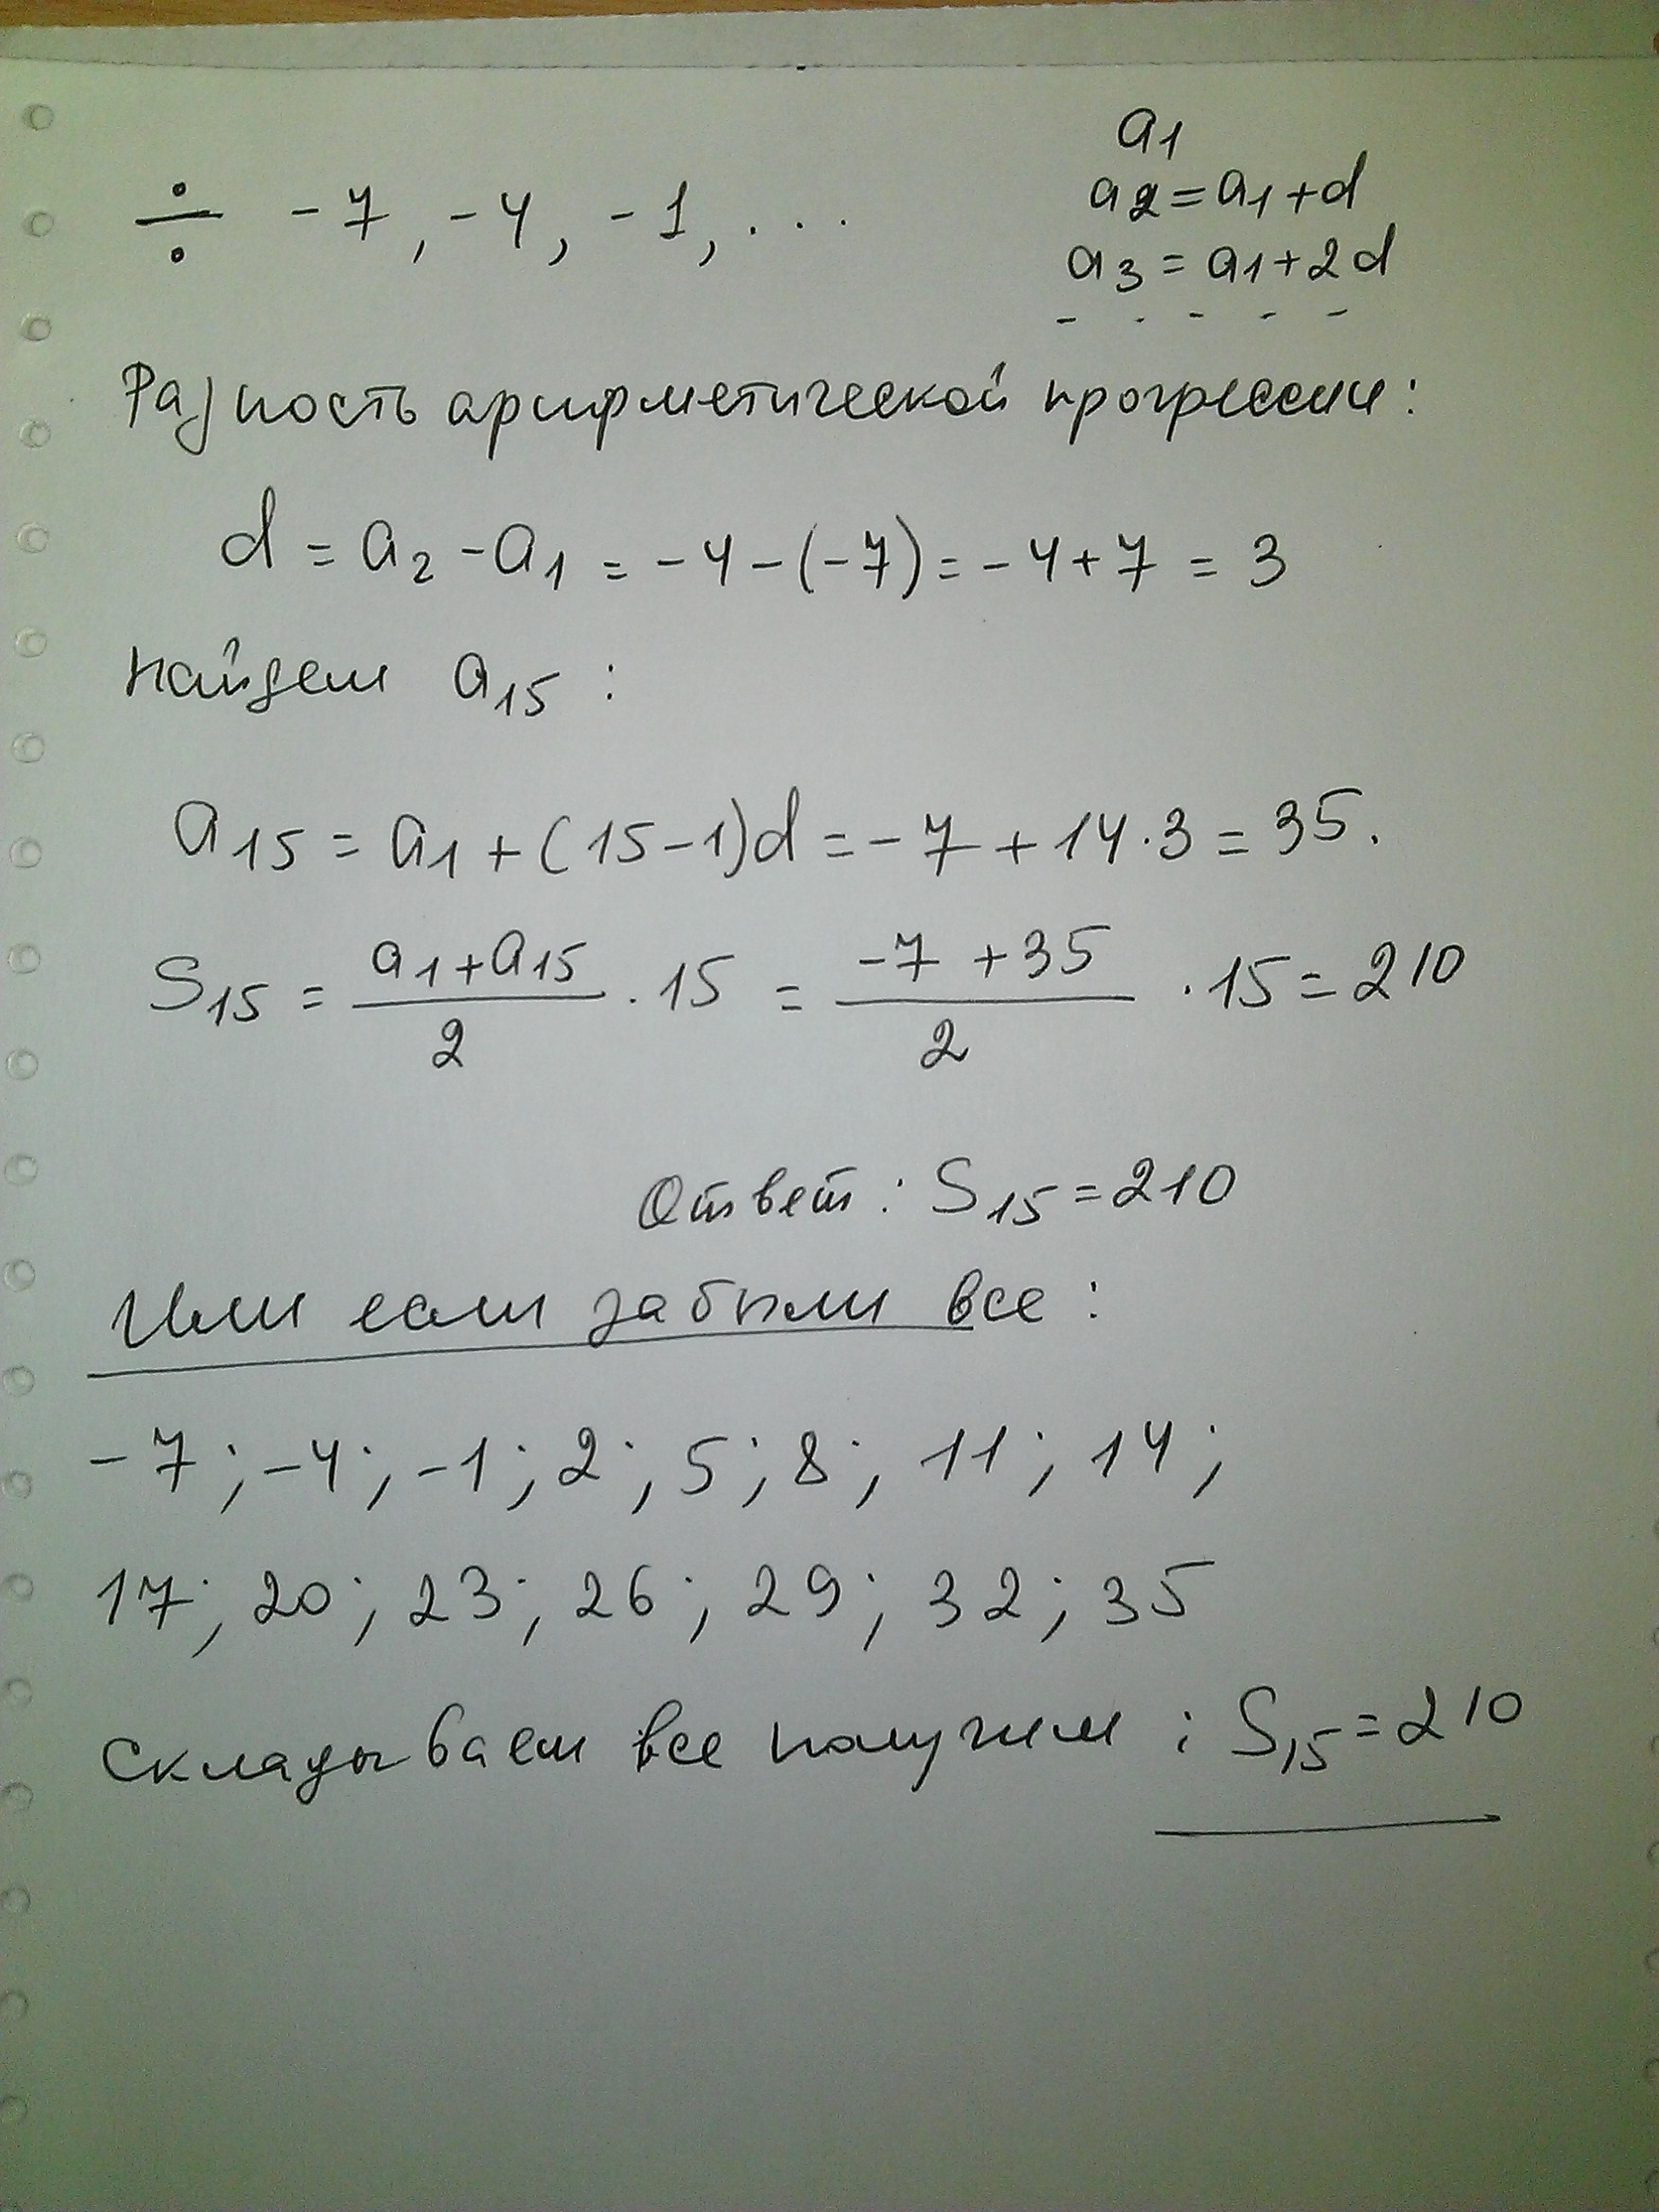 ÷ -7, -4, -1, ...
a₁
a₂ = a₁ + d
a₃ = a₁ + 2d
- - - - -
Разность арифметической прогрессии:
d = a₂ - a₁ = -4 - (-7) = -4 + 7 = 3
Найдем a₁₅ :
a₁₅ = a₁ + (15-1)d = -7 + 14·3 = 35.
S₁₅ = (a₁ + a₁₅)/2 · 15 = (-7 + 35)/2 · 15 = 210
Ответ: S₁₅ = 210
Или если забыли все:
-7; -4; -1; 2; 5; 8; 11; 14;
17; 20; 23; 26; 29; 32; 35
Складываем все получим : S₁₅ = 210